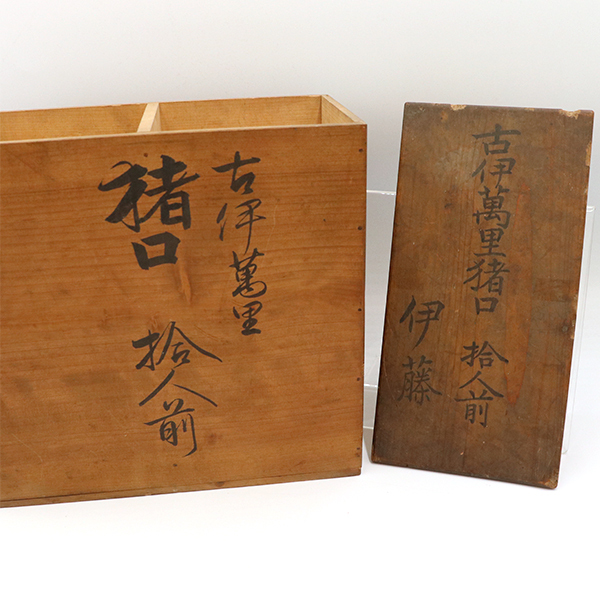 古伊萬里
猪口
拾人前
古伊萬里猪口 拾人前
伊藤